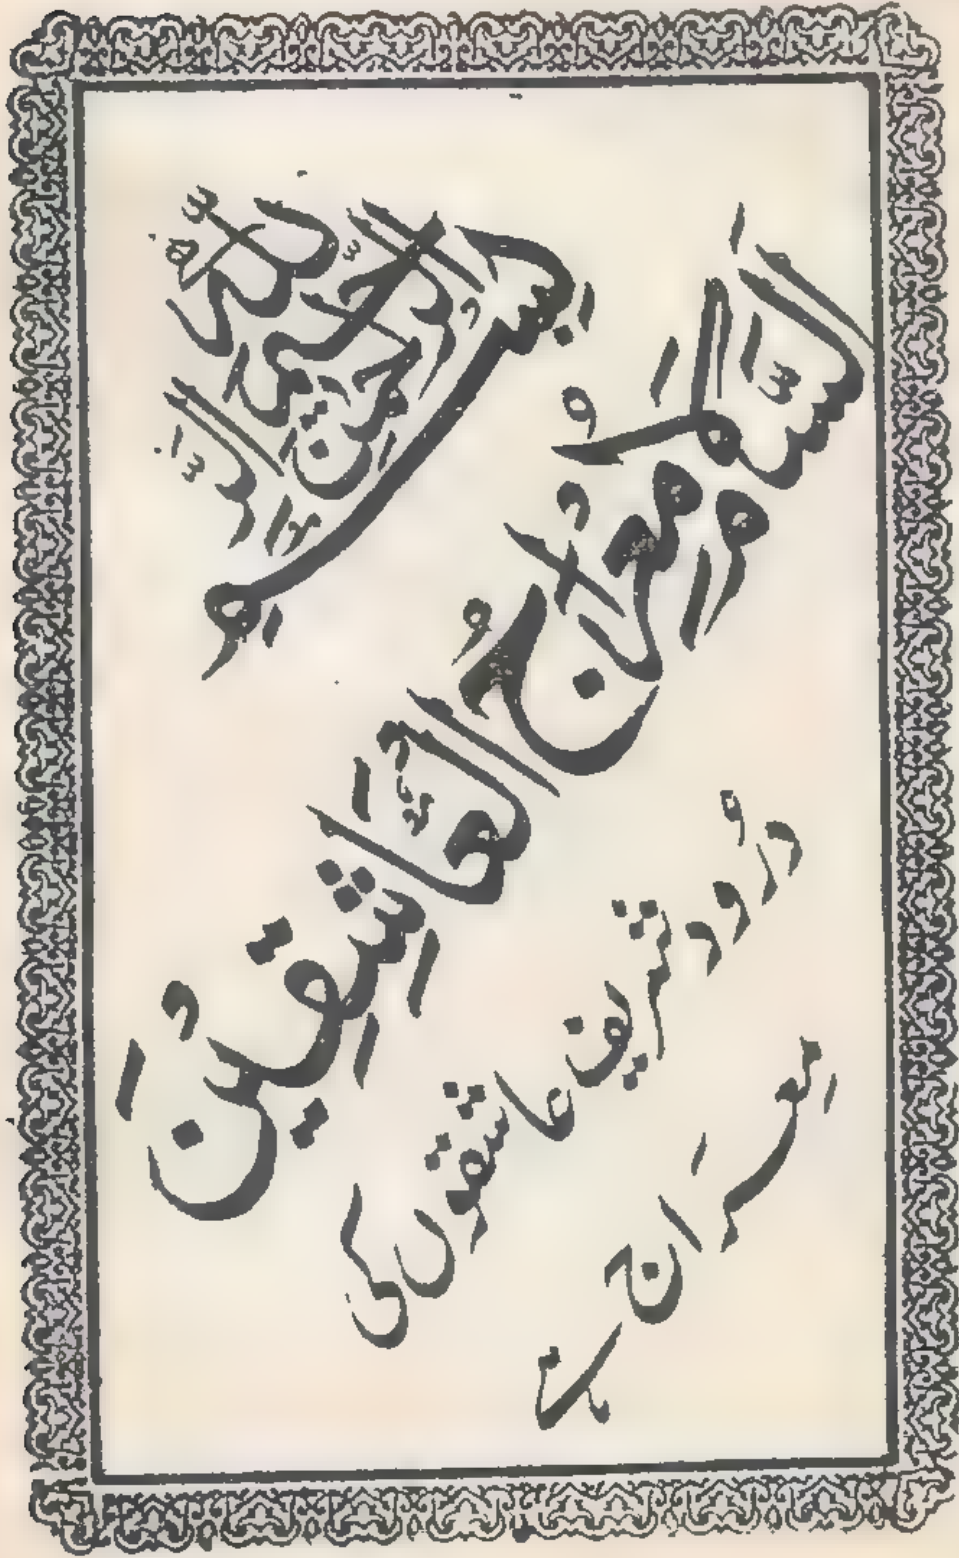 بِسْمِ اللّٰهِ الرَّحْمٰنِ الرَّحِيْمِ
اَلسَّلَامُ مِعْرَاجُ الْعَاشِقِيْنَ
دُرُود شریف عاشقوں کی
مِعرَاج ہے